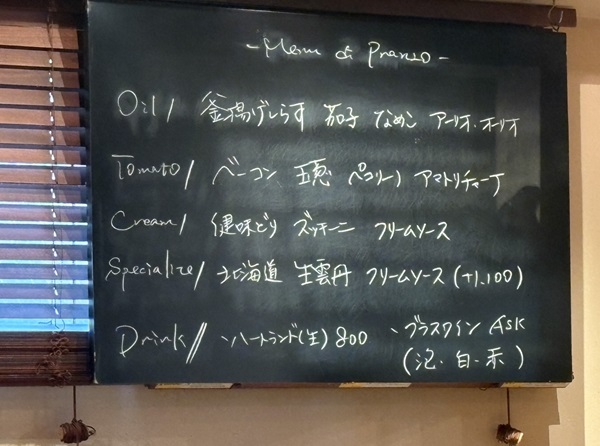 - Menu di Pranzo -
Oil / 釜揚げしらす 茄子 なめこ アーリオ・オーリオ
Tomato / ベーコン 玉葱 ペコリーノ アマトリチャーナ
Cream / 健味どり ズッキーニ クリームソース
Specialize / 北海道 生雲丹 クリームソース (+1.100)
Drink // ・ハートランド(生) 800 ・グラスワイン ASK
(泡・白・赤)